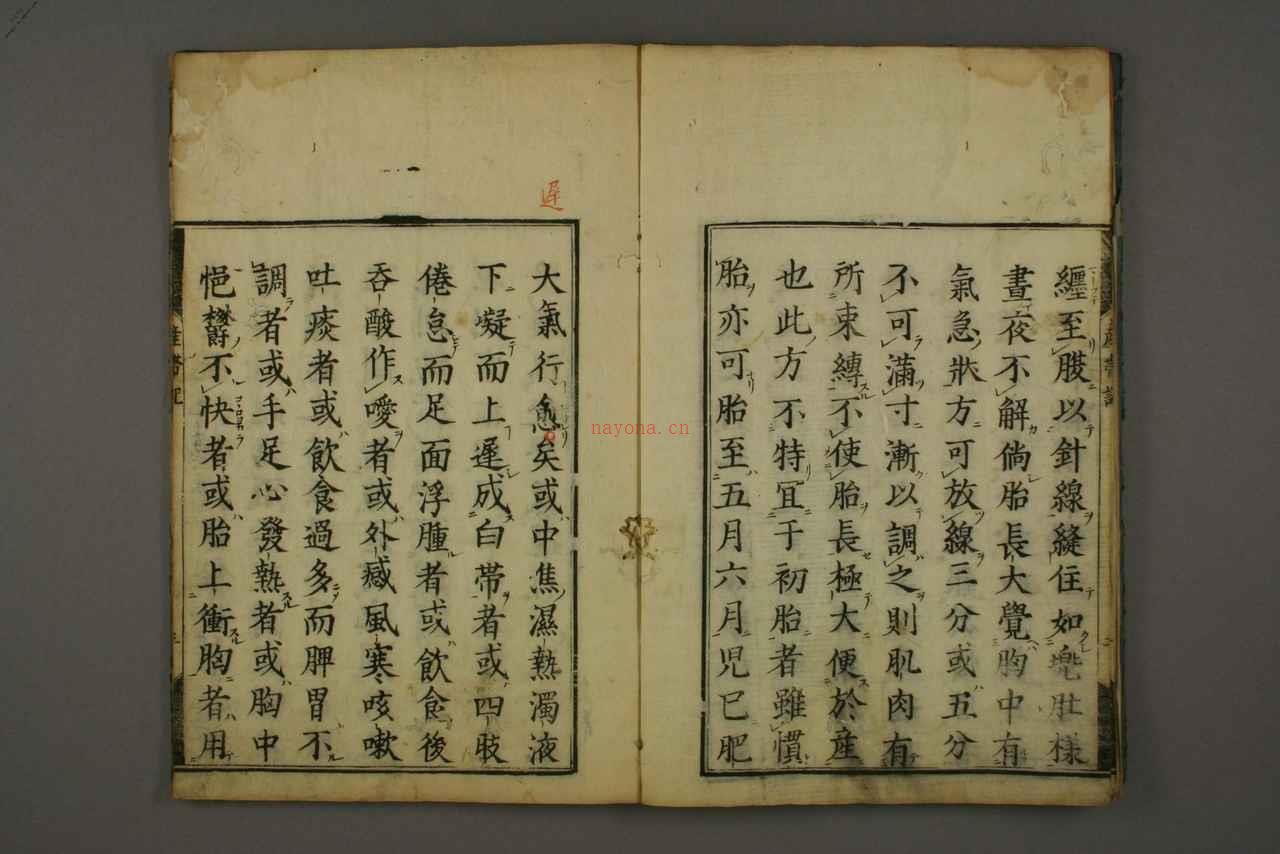 纏至腹以針線縫住如兠肚様
晝夜不解倘胎長大覺胸中有
氣急狀方可放線三分或五分
不可滿寸漸以調之則肌肉有
所束縛不使胎長極大便於産
也此方不特冝于初胎者雖慣
胎亦可胎至五月六月児已肥
遅
大氣行愈矣或中焦濕熱濁液
下凝而上遲成白帯者或四肢
倦怠而足面浮腫者或飲食後
吞酸作噯者或外感風寒咳嗽
吐痰者或飲食過多而脾胃不
調者或手足心發熱者或胸中
悒欝不快者或胎上衝胸者用
nayona.cn